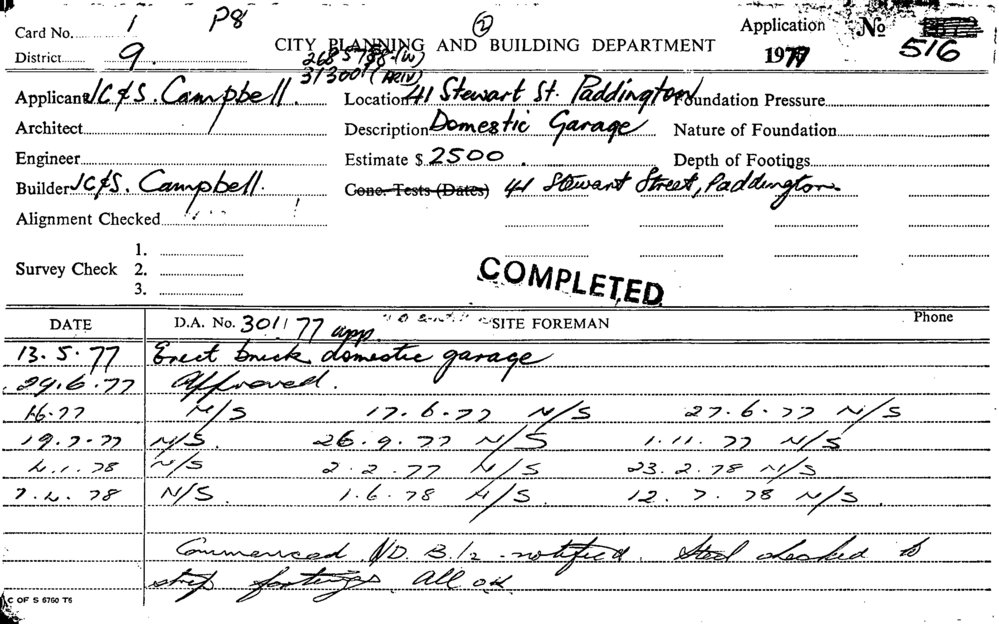 Card No. 1 P8 2 Application No
District 9. CITY PLANNING AND BUILDING DEPARTMENT 1977 516
313001 (PRIV)
Applicant J C & S. Campbell. Location 41 Stewart St. Paddington Foundation Pressure
Architect Description Domestic Garage Nature of Foundation
Engineer Estimate $ 2500. Depth of Footings
Builder J C & S. Campbell. Conc. Tests (Dates) 41 Stewart Street, Paddington.
Alignment Checked
1.
Survey Check 2.
3.
COMPLETED
DATE D.A. No. 301/77 app. SITE FOREMAN Phone
13.5.77 Erect brick domestic garage
29.6.77 Approved.
1.6.77 N/S 17.6.77 N/S 27.6.77 N/S
19.7.77 N/S. 26.9.77 N/S 1.11.77 N/S
4.1.78 N/S 2.2.77 N/S 23.2.78 N/S
7.4.78 N/S. 1.6.78 N/S 12.7.78 N/S.
Commenced N.D. B.12 notified. Steel checked to
strip footings all ok
C OF S 6760 T6